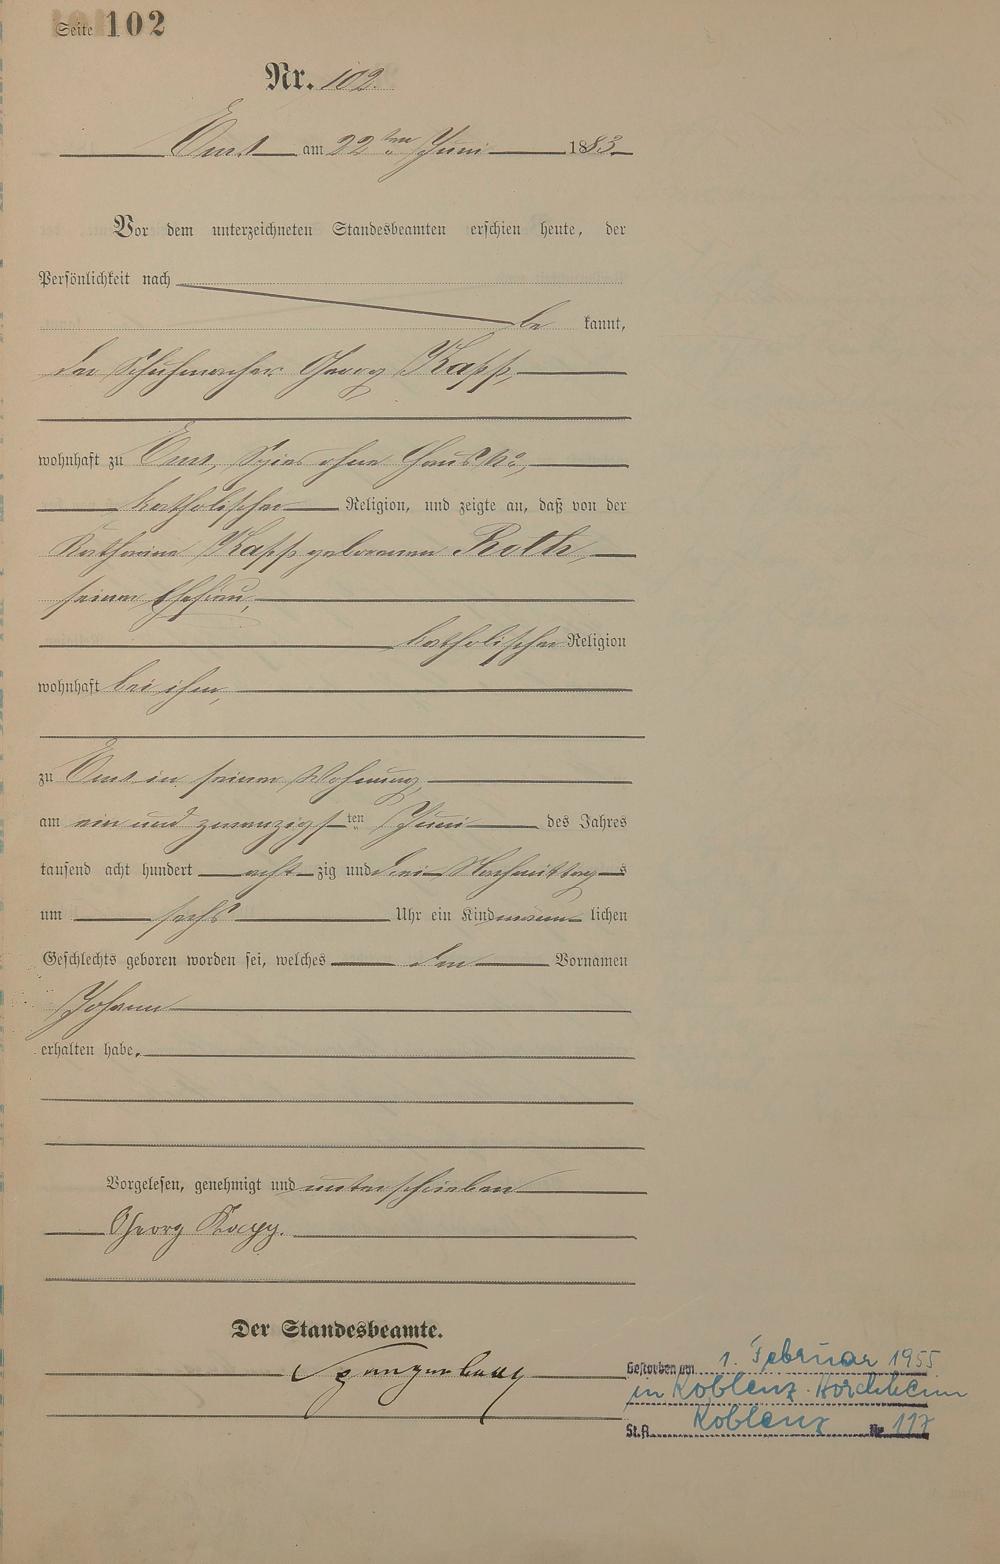 Seite 102
Nr. 102.
Ems am 22ten Juni 1883
Vor dem unterzeichneten Standesbeamten erschien heute, der
Persönlichkeit nach
be kannt,
der Schuhmacher Georg Kapp,
wohnhaft zu Ems, Spies ohne Haus No,
katholischer Religion, und zeigte an, daß von der
Katharina Kapp geborenen Roth,
seiner Ehefrau,
katholischer Religion
wohnhaft bei ihm,
zu Ems in seiner Wohnung,
am ein und zwanzigsten Juni des Jahres
tausend acht hundert acht zig und drei Nachmittags
um sechs Uhr ein Kind männlichen
Geschlechts geboren worden sei, welches den Vornamen
Johann
erhalten habe.
Vorgelesen, genehmigt und unterschrieben
Georg Kapp.
Der Standesbeamte.
Spangenberg
Gestorben am 1. Februar 1955
in Koblenz-Horchheim
St.A. Koblenz Nr 117